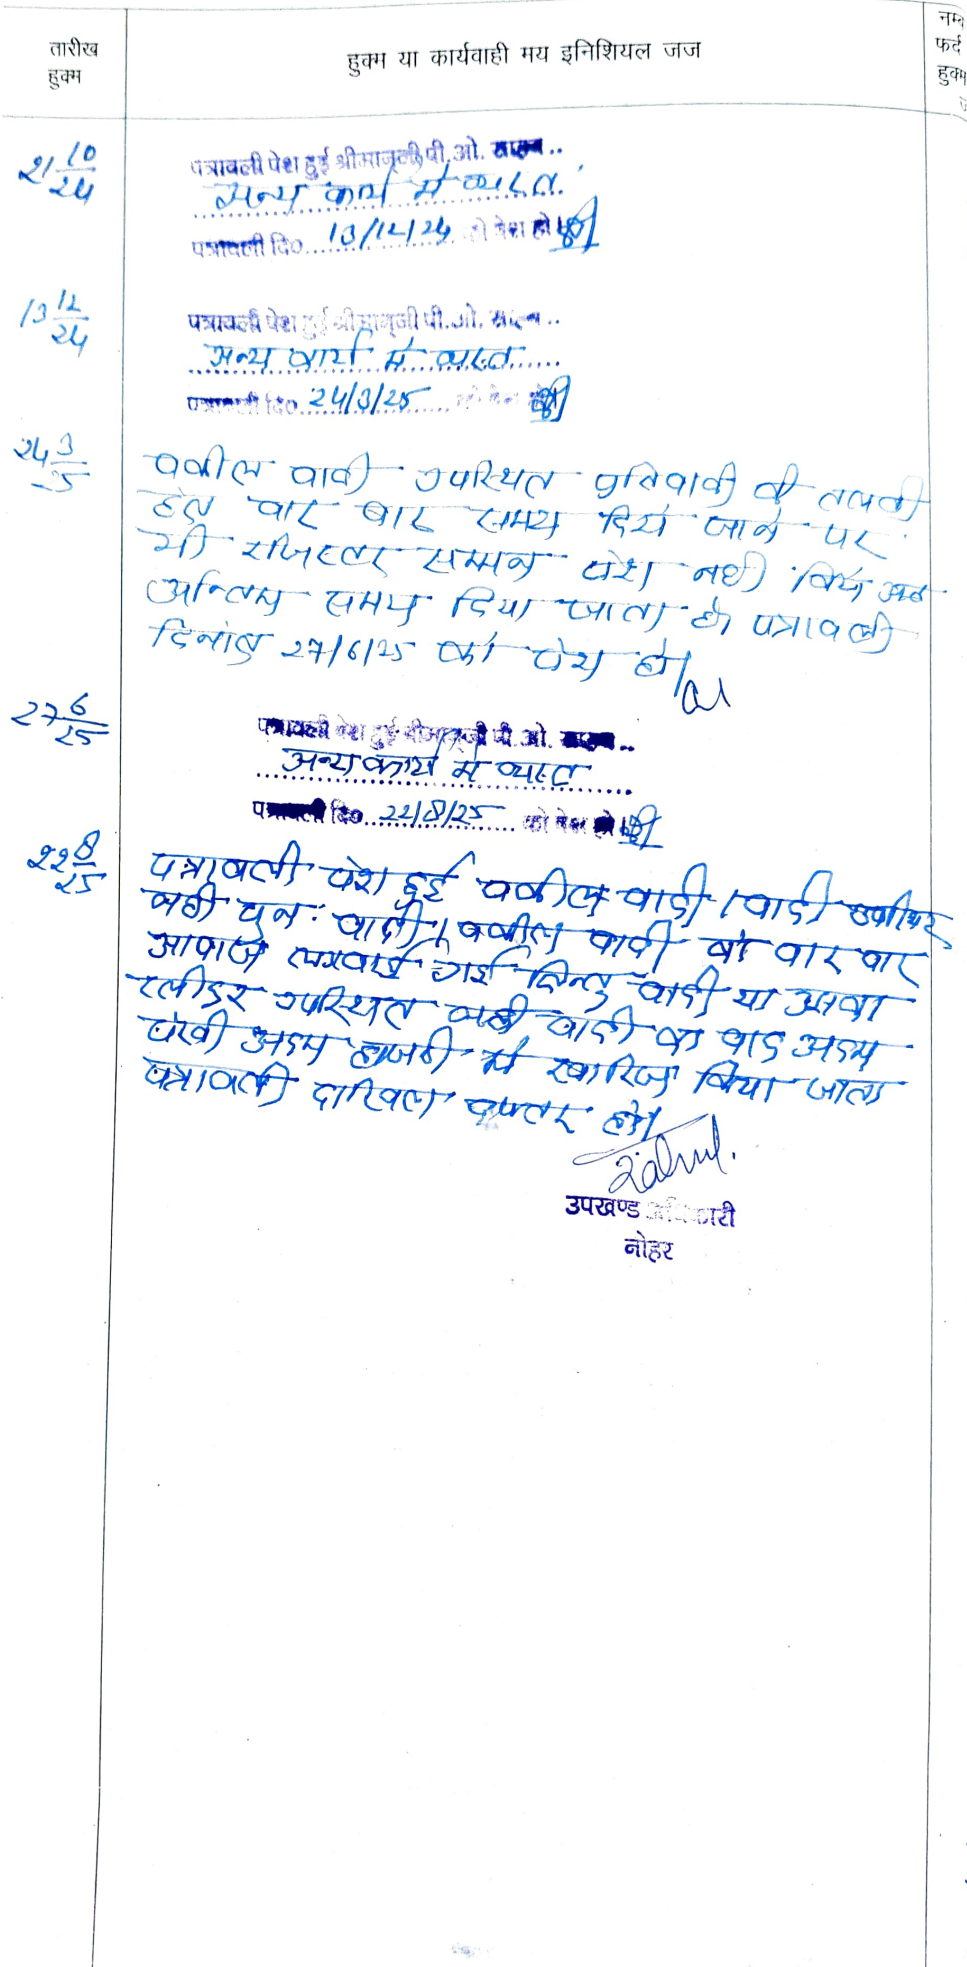 तारीख
हुक्म
हुक्म या कार्यवाही मय इनिशियल जज
नम्ब
फर्द
हुक्म
21 10/24
पत्रावली पेश हुई श्रीमानजी पी. ओ. साहब..
अन्य कार्य में व्यस्त
पत्रावली दि० 13/12/24 को पेश हो।
13 12/24
पत्रावली पेश हुई श्रीमानजी पी. ओ. साहब..
अन्य कार्य में व्यस्त
पत्रावली दि० 24/3/25 को पेश
24 3/25
वकील वादी उपस्थित प्रतिवादी की तलबी
हेतु बार बार समय दिये जाने पर
भी रजिस्टर सम्मन पेश नहीं किये अतः
अन्तिम समय दिया जाता है। पत्रावली
दिनांक 27/6/25 को पेश हो।
27 6/25
पत्रावली पेश हुई श्रीमानजी पी. ओ. साहब..
अन्य कार्य में व्यस्त
पत्रावली दि० 22/8/25 को पेश हो।
22 8/25
पत्रावली पेश हुई वकील वादी / वादी उपस्थित
नही पुनः वादी / वकील वादी को बार बार
आवाजे लगवाई गई किन्तु वादी या उसका
प्लीडर उपस्थित नही वादी का वाद अदम
पैरवी अदम हाजरी में खारिज किया जाता
पत्रावली दाखिल दफ्तर हो।
उपखण्ड अधिकारी
नोहर